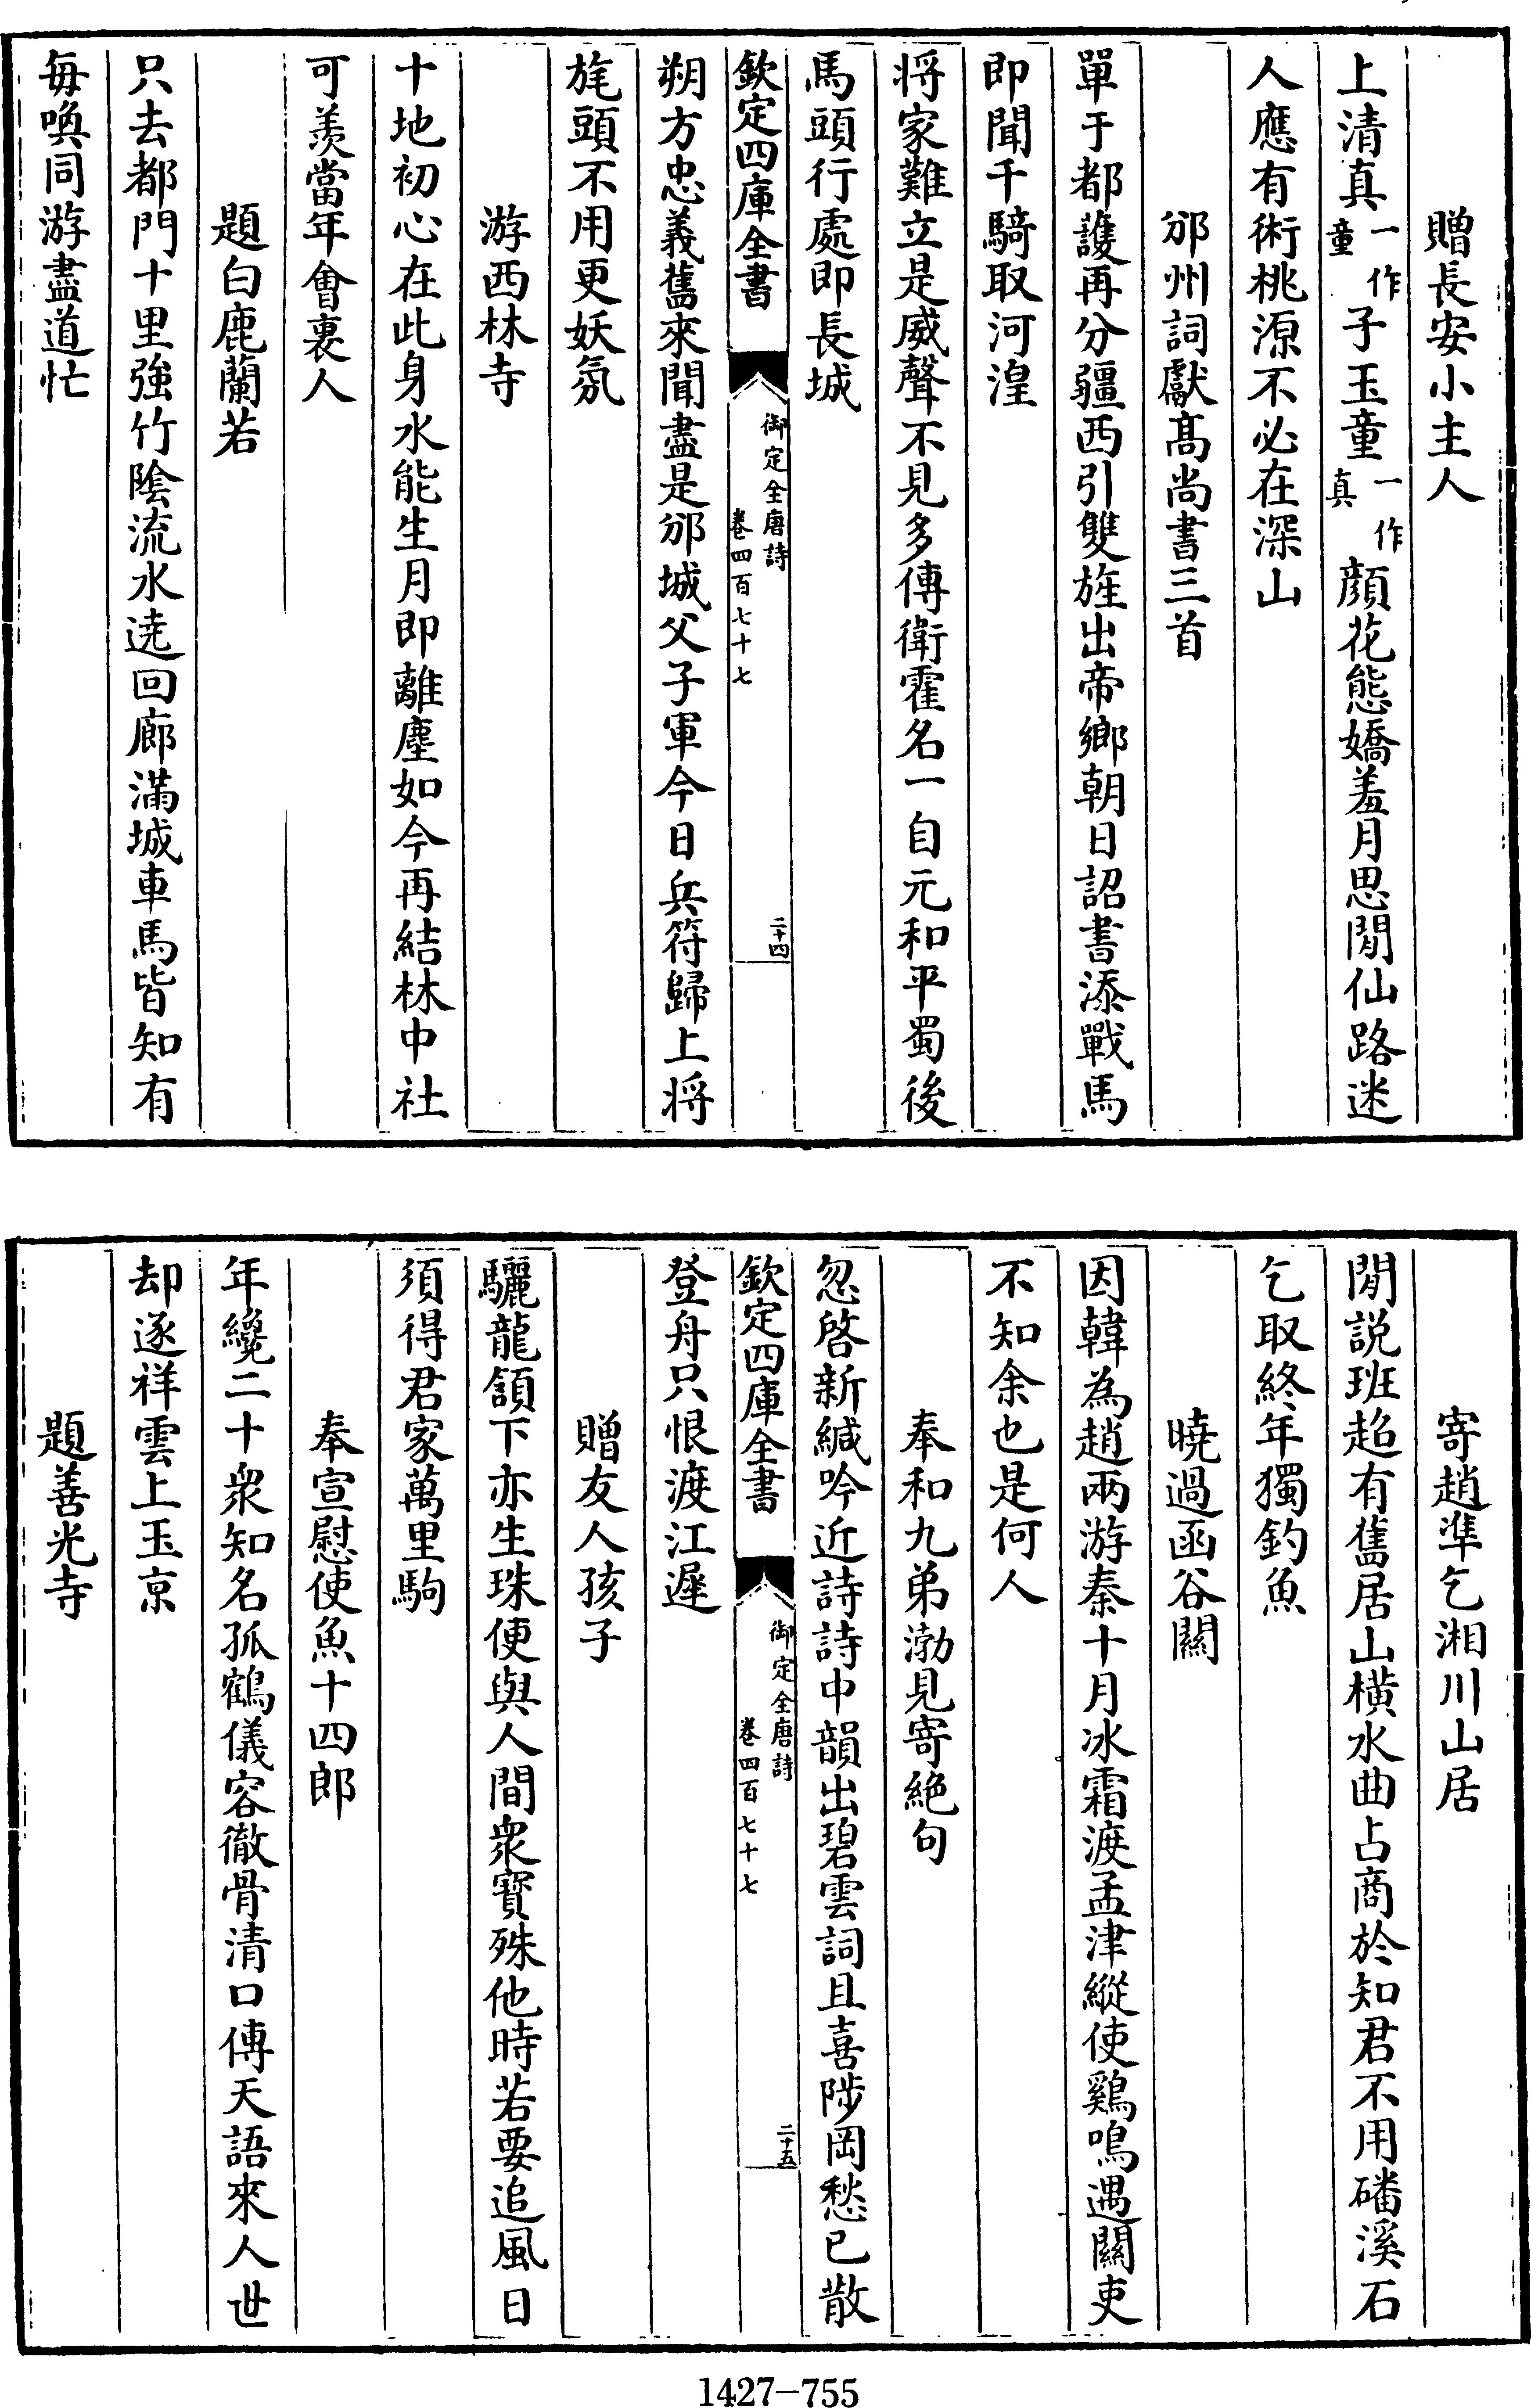 贈長安小主人
上清真一作童子玉童一作真顔花態嬌羞月思閒仙路迷
人應有術桃源不必在深山
邠州詞獻髙尚書三首
單于都䕶再分疆西引雙旌出帝鄉朝日詔書添戰馬
即聞千騎取河湟
将家難立是威聲不見多傳衛霍名一自元和平蜀後
馬頭行處即長城
欽定四庫全書
御定全唐詩
卷四百七十七
二十四
朔方忠義舊來聞盡是邠城父子軍今日兵符歸上将
旄頭不用更妖氛
游西林寺
十地初心在此身水能生月即離塵如今再結林中社
可羨當年會裏人
題白鹿蘭若
只去都門十里強竹陰流水遶回廊滿城車馬皆知有
每喚同游盡道忙
寄趙準乞湘川山居
閒説班超有舊居山橫水曲占商於知君不用磻溪石
乞取終年獨釣魚
曉過函谷關
因韓為趙兩游秦十月冰霜渡孟津縱使鷄鳴遇關吏
不知余也是何人
奉和九弟渤見寄絶句
忽啓新緘吟近詩詩中韻出碧雲詞且喜陟岡愁已散
欽定四庫全書
御定全唐詩
卷四百七十七
二十五
登舟只恨渡江遲
贈友人孩子
驪龍頷下亦生珠便與人間衆寳殊他時若要追風日
須得君家萬里駒
奉宣慰使魚十四郎
年纔二十衆知名孤鶴儀容徹骨清口傳天語來人世
却逐祥雲上玉京
題善光寺
1427-755